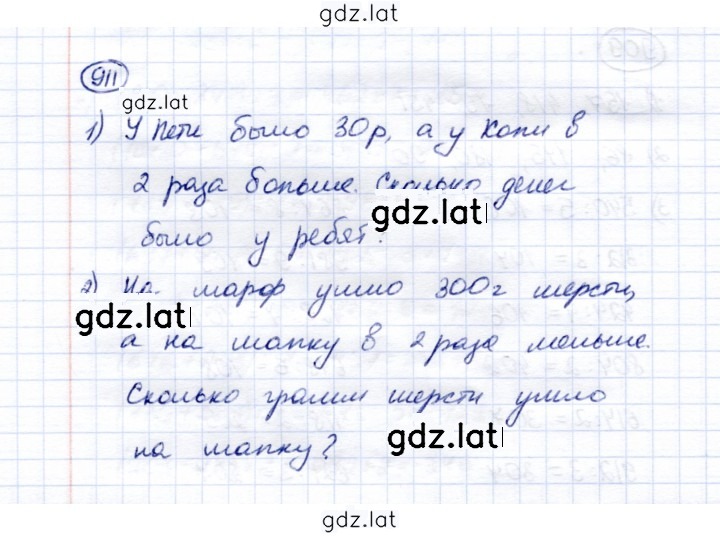 gdz.lat
911
gdz.lat
1) У Пети было 30р, а у Коли в
2 раза больше. Сколько денег
gdz.lat
было у ребят?
2) На шарф ушло 300г шерсти,
gdz.lat
а на шапку в 2 раза меньше.
Сколько грамм шерсти ушло
gdz.lat
на шапку?
gdz.lat